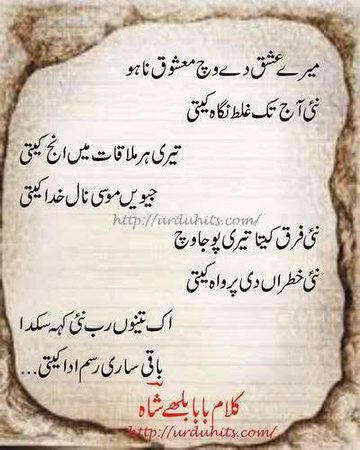 میرے عشق دے وچ معشوق نا ہو
نئی آج تک غلط نگاہ کیتی
تیری ہر ملاقات میں انج کیتی
جیویں موسی نال خدا کیتی
http://urduhits.com/
نئی فرق کیتا تیری پوجا وچ
نئی خطراں دی پرواہ کیتی
اک تینوں رب نئی کہہ سکدا
باقی ساری رسم ادا کیتی...
کلام بابا بلھے شاہ
http://urduhits.com/